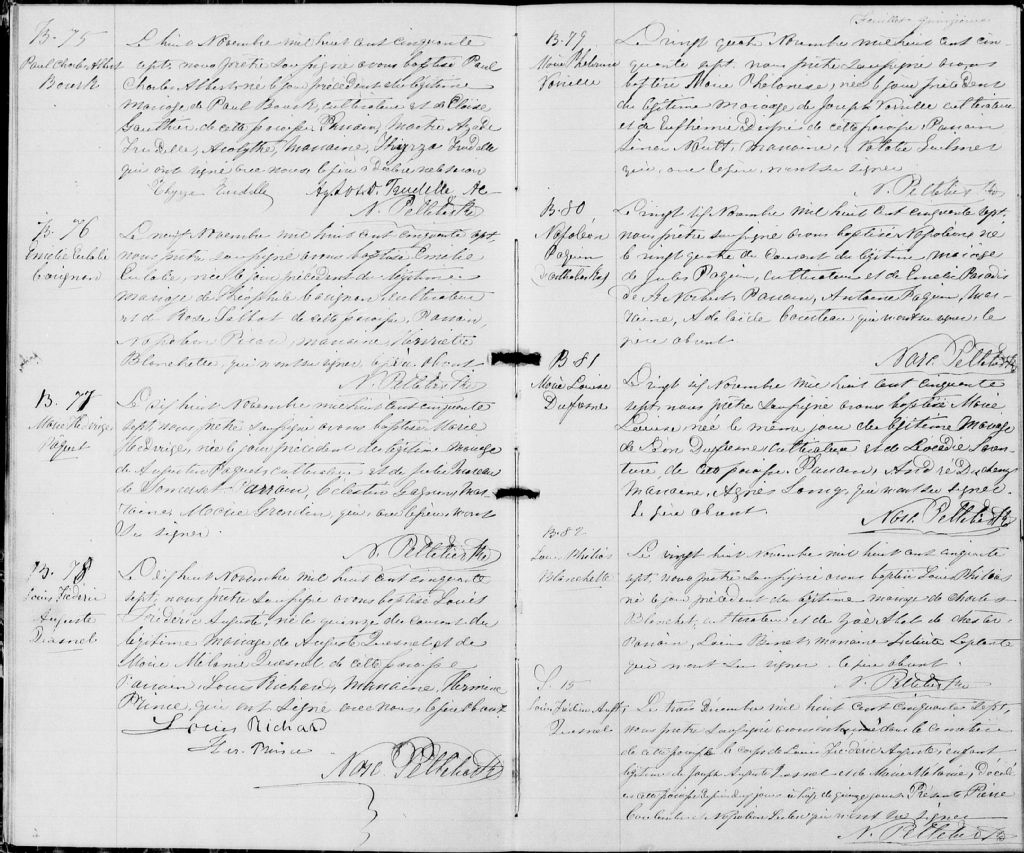 B. 75
Paul Charles Albert
Bourk
Le huit Novembre mil huit cent cinquante
sept, nous prêtre soussigné avons baptisé Paul
Charles Albert né le jour précédent du légitime
mariage de Paul Bourk, cultivateur et de Eloise
Gauthier de cette paroisse. Parrain,
Trudelle, Acolythe, marraine, Thyrza Trudelle
qui ont signé avec nous. le père
Thyrza Trudelle Trudelle, Ac-
N. Pelletier Ptre
B. 76
Emelie Eulalie
Le neuf Novembre mil huit cent cinquante sept,
nous prêtre soussigné avons baptisé Emelie
Eulalie, née le jour précédent du légitime
mariage de Théophile cultivateur
et de Rose Talbot de cette paroisse, Parrain,
Napoléon marraine Henriette
Blanchette, qui n'ont su signer, le père absent
N. Pelletier Ptre
B. 77
Marie Hedwige
Paquet
Le dix huit Novembre mil huit cent cinquante
sept, nous prêtre soussigné avons baptisé Marie
Hedwige, née le jour précédent du légitime mariage
de Augustin Paquet, cultivateur et de Julie
de Somerset Parrain, Célestin Gagnon, Mar-
raine Marie qui, avec le père, n'ont
su signer.
N. Pelletier Ptre
B. 78
Louis Frédéric
Auguste
Quesnel
Le dix huit Novembre mil huit cent cinquante
sept, nous prêtre soussigné avons baptisé Louis
Frédéric Auguste, né le quinze du courant du
légitime mariage de Auguste Quesnel et de
Marie Mélanie Quesnel de cette paroisse
Parrain, Louis Richard, Marraine, Hermine
Prince, qui ont signé avec nous, le père absent.
Louis Richard
Her. Prince
Narc. Pelletier Ptre
Feuillet quinzième
B. 79
Marie Philomène
Le vingt quatre Novembre mil huit cent cin-
quante sept, nous prêtre soussigné avons
baptisé Marie Philomène, née le jour précédent
du légitime mariage de Joseph cultivateur
et de de cette paroisse, Parrain
marraine, Natalie
qui, avec le père, n'ont su signer
N. Pelletier Ptre
B. 80
Napoléon
Paquin
Le vingt six Novembre mil huit cent cinquante sept,
nous prêtre soussigné avons baptisé Napoléon né
le vingt quatre du courant du légitime mariage
de Jules Paquin, cultivateur et de Emelie Paradis
de St Norbert, Parrain, Antoine Paquin, Mar-
raine, Adelaide qui n'ont su signer, le
père absent.
Narc. Pelletier Ptre
B. 81
Marie Louise
Dufresne
Le vingt six Novembre mil huit cent cinquante
sept, nous prêtre soussigné avons baptisé Marie
Louise, née le même jour du légitime mariage
de Léon Dufresne cultivateur et de Leocadie
de cette paroisse, Parrain, André
Marraine, Agnès qui n'ont su signer.
le père absent.
Narc. Pelletier Ptre
B. 82
Louis
Blanchette
Le vingt huit Novembre mil huit cent cinquante
sept, nous prêtre soussigné avons baptisé Louis
né le jour précédent du légitime mariage de Charles
Blanchet, cultivateur et de de
Parrain, Louis marraine Laplante
qui n'ont su signer. le père absent.
N. Pelletier Ptre
S. 15
Louis Frédéric Aug.
Quesnel
Le trois Décembre mil huit cent cinquante sept,
nous prêtre soussigné avons inhumé dans le cimetière
de cette paroisse le corps de Louis Frédéric Auguste, enfant
légitime de Joseph Auguste Quesnel et de Marie Mélanie, décédé
en cette paroisse depuis deux jours à l'âge de quinze jours. Présents Pierre
et Napoléon qui n'ont su signer
N. Pelletier Ptre